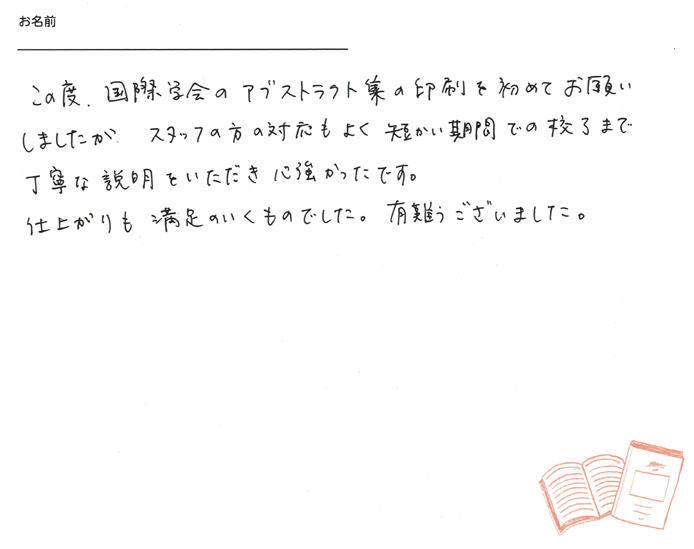 お名前
この度、国際学会のアブストラクト集の印刷を初めてお願い
しましたが、スタッフの方の対応もよく短かい期間での校了まで
丁寧な説明をいただき心強かったです。
仕上がりも満足のいくものでした。有難うございました。